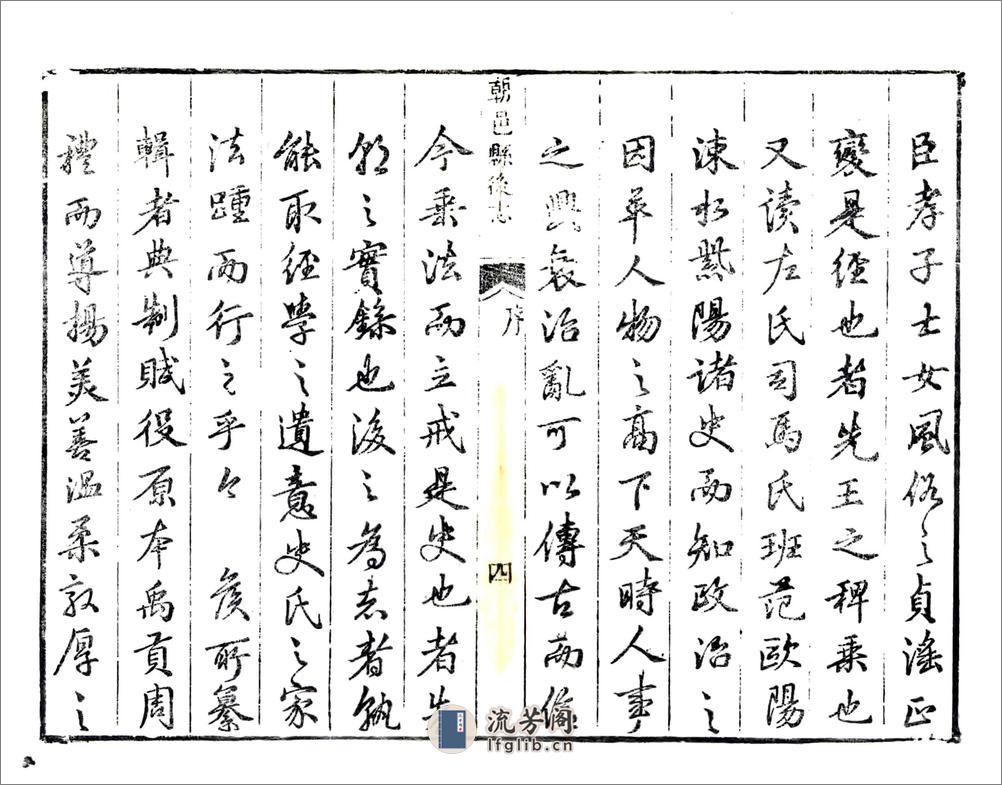 臣孝子士女風俗之貞滛正
變是經也者先王之稗乗也
又读左氏司馬氏班范歐陽
涑水陽諸史而知政治之
因革人物之高下天時人事
之興衰治亂可以傳古而
朝邑縣後志 序 四
今垂法而立戒是史也者先
朝之實錄也後之為志者孰
能取經學之遺意史氏之家
法踵而行之乎今 侯所纂
輯者典制賦役原本禹貢周
禮而導揚美善温柔敦厚之
流芳阁
lfglib.cn